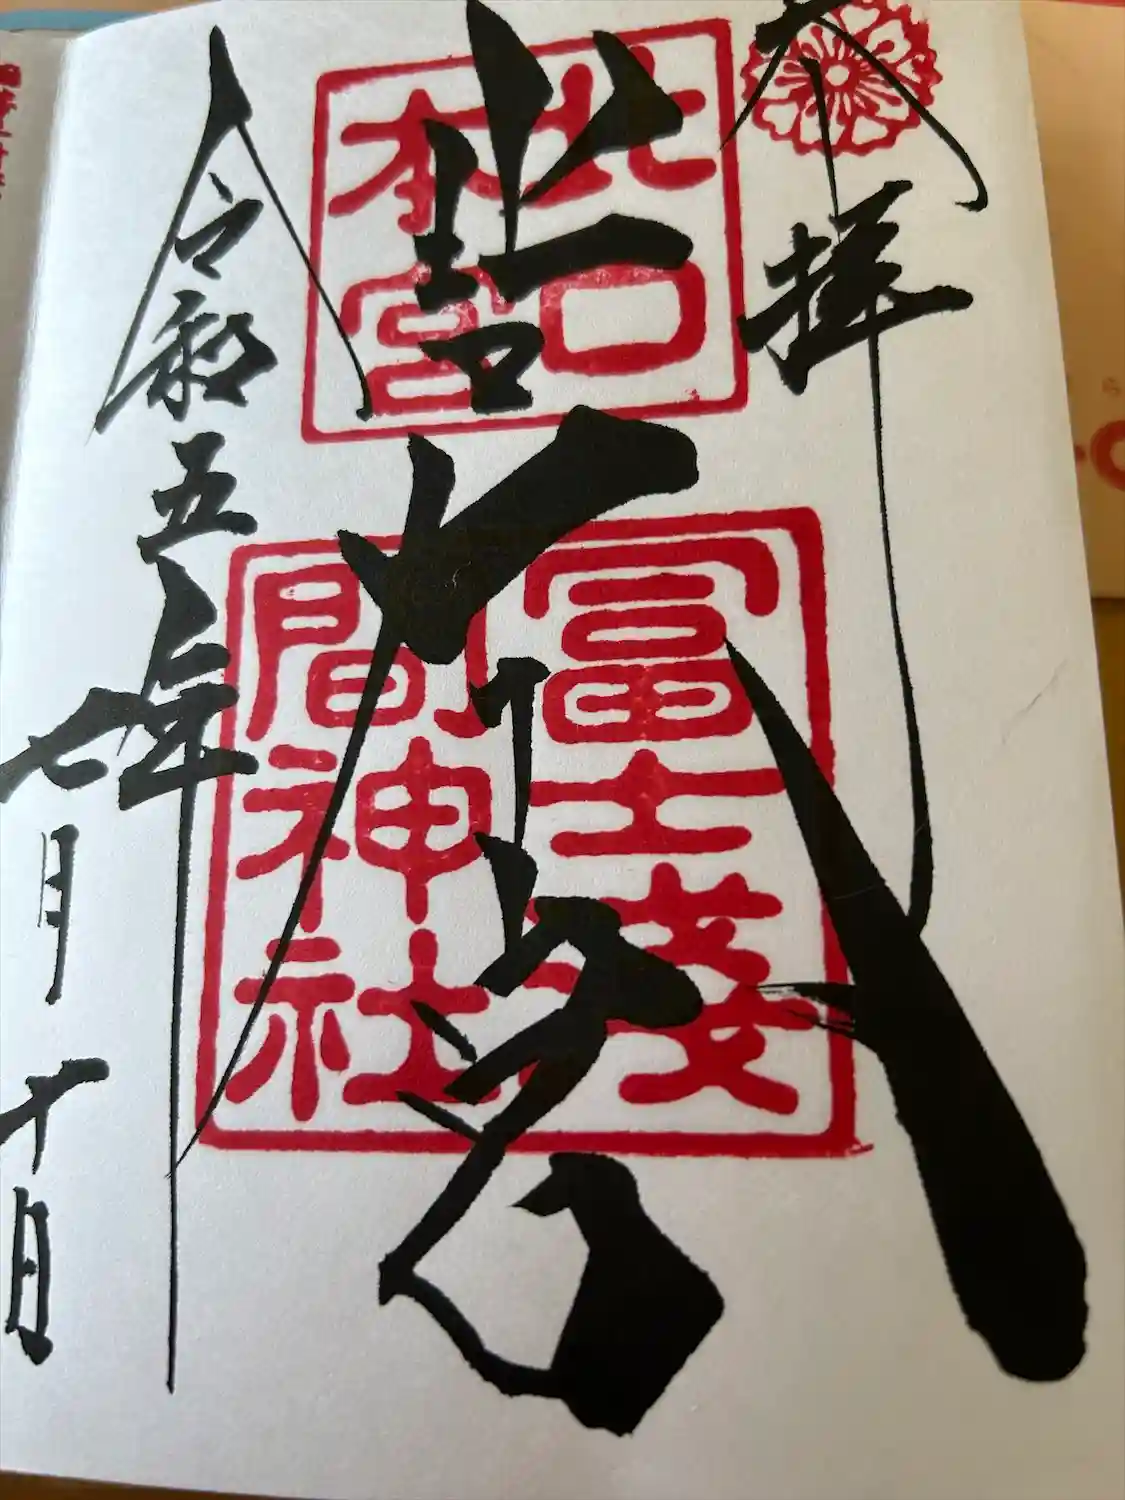 奉拝
北口
本宮
北口
冨士淺
間神社
令和五年
七月十日